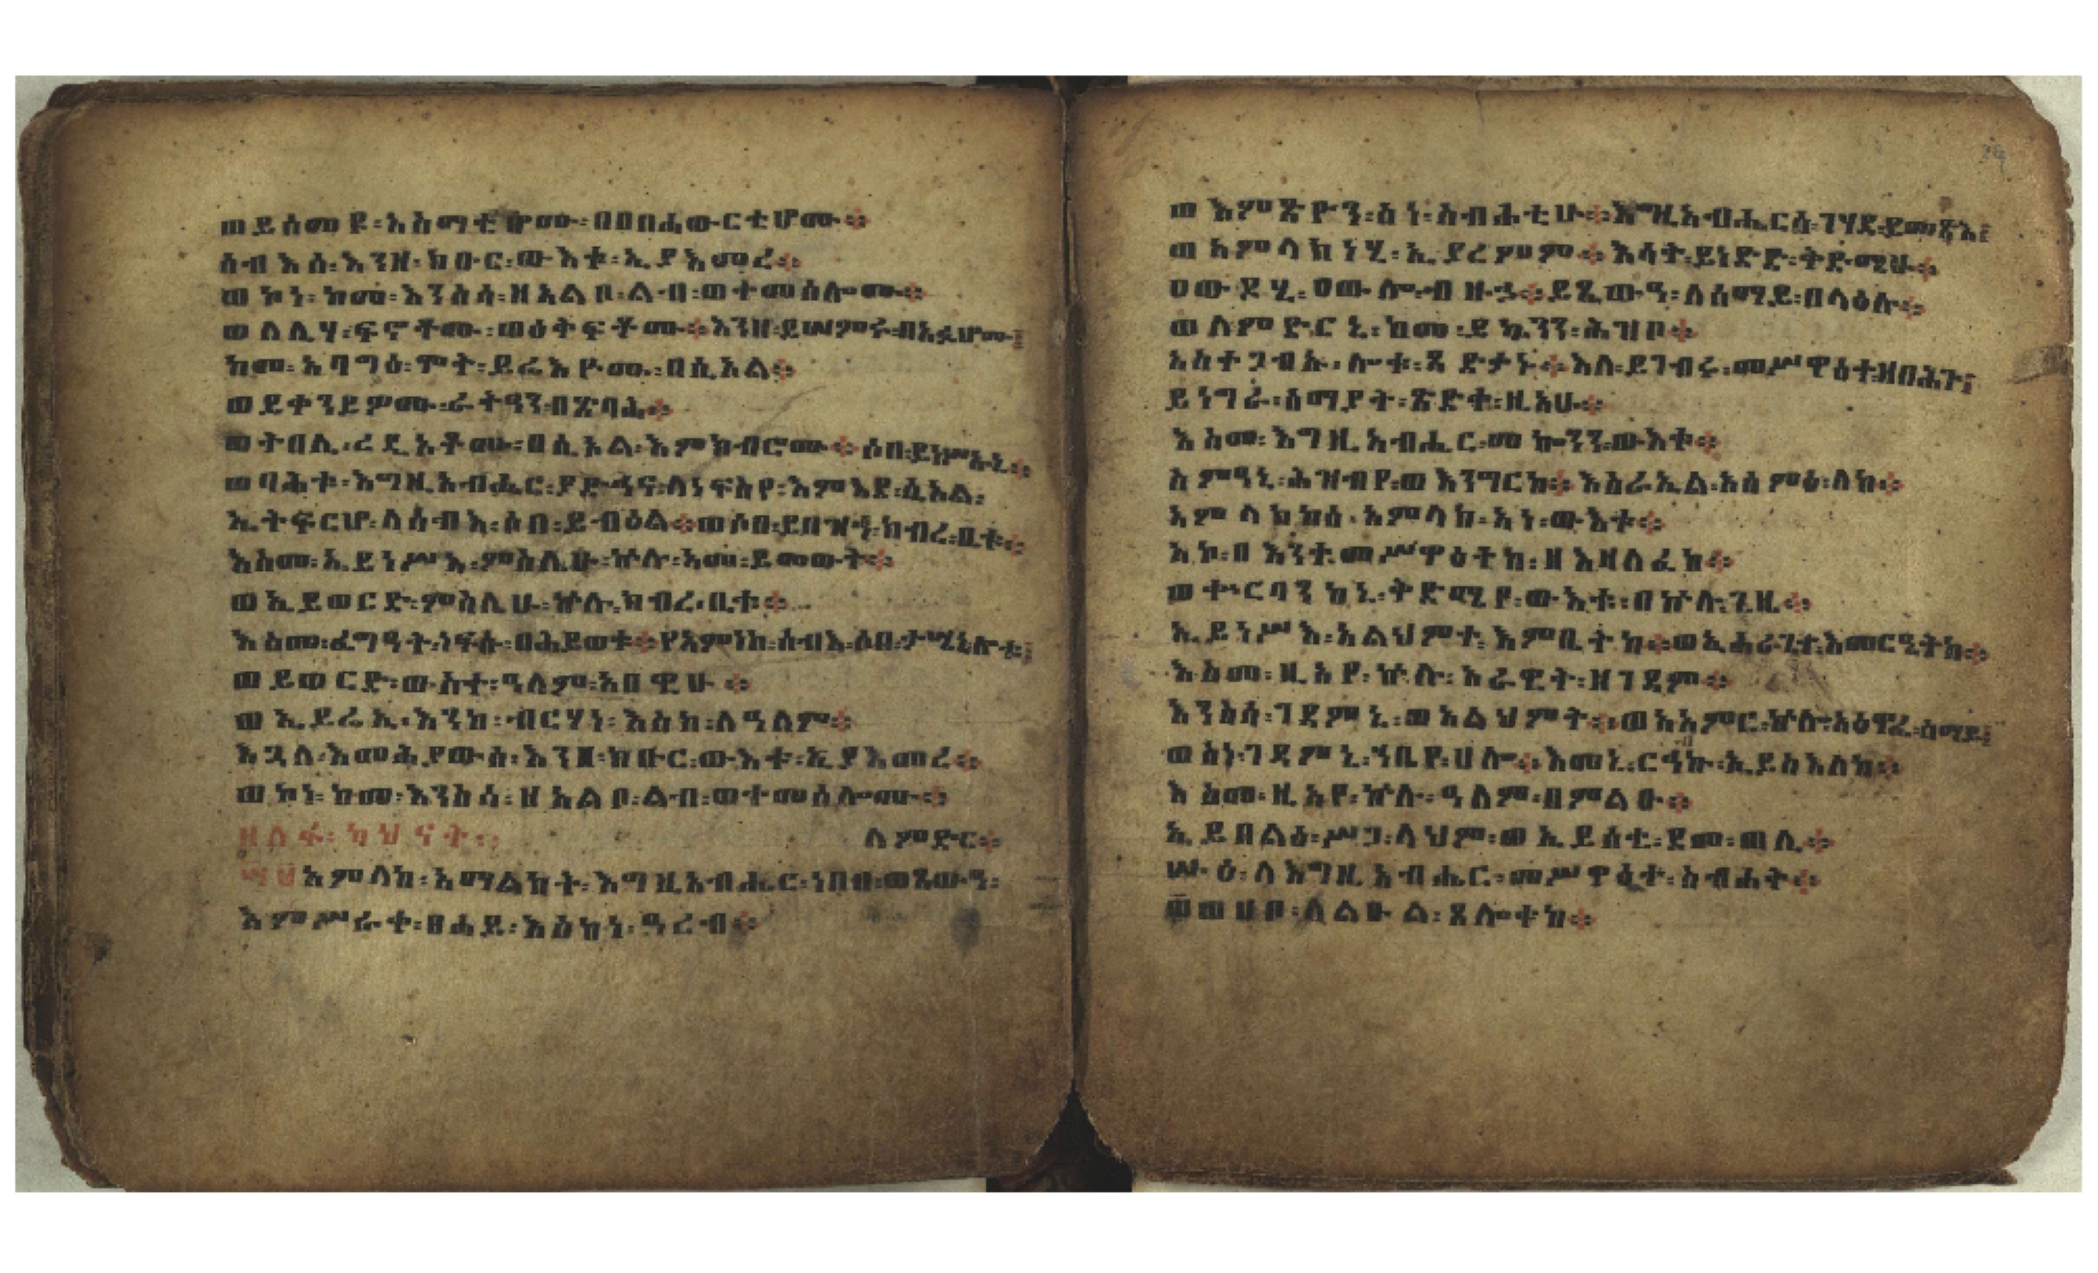 ወይሰመዩ፡አስማቲሆሙ፡በበበሐውርቲሆሙ።
ሰብእሰ፡እንዘ፡ክቡር፡ውእቱ፡ኢያእመረ።
ወኮነ፡ከመ፡እንስሳ፡ዘአልቦ፡ልብ፡ወተመሰሎሙ።
ወለሊሃ፡ፍኖቶሙ፡ወዕቅፍቶሙ።እንዘ፡ይሠምሩ፡በአፉሆሙ፤
ከመ፡አባግዕ፡ሞት፡ይሬእዮሙ፡በሲኦል።
ወይቀንይዎሙ፡ራትዓን፡በጽባሕ።
ወትበሊ፡ረዲኤቶሙ፡በሲኦል፡እምክብሮሙ።ሶበ፡ይነሥኡኒ።
ወባሕቱ፡እግዚአብሔር፡ያድኅና፡ለነፍስየ፡እምእደ፡ሲኦል፡
ኢትፍርሆ፡ለሰብእ፡ሶበ፡ይብዕል።ወሶበ፡ይበዝኅ፡ክብረ፡ቤቱ።
እስመ፡ኢይነሥእ፡ምስሌሁ፡ኵሎ፡አመ፡ይመውት።
ወኢይወርድ፡ምስሌሁ፡ኵሉ፡ክብረ፡ቤቱ።
እስመ፡ፈግዓት፡ነፍሱ፡በሕይወቱ።የአምነከ፡ሰብእ፡ሶበ፡ታሤኒ፡ሎቱ፤
ወይወርድ፡ውስተ፡ዓለም፡አበዊሁ።
ወኢይሬኢ፡እንከ፡ብርሃነ፡እስከ፡ለዓለም።
እጓለ፡እመሕያውሰ፡እንዘ፡ክቡር፡ውእቱ፡ኢያእመረ።
ወኮነ፡ከመ፡እንስሳ፡ዘአልቦ፡ልብ፡ወተመሰሎሙ።
ለምድር።
አምላከ፡አማልክት፡እግዚአብሔር፡ነበበ፡ወጸውዓ፡
እምሥራቀ፡ፀሐይ፡እስከነ፡ዓረብ።
ወእምጽዮን፡ስነ፡ስብሐቲሁ።እግዚአብሔርሰ፡ገሃደ፡ይመጽእ፤
ወአምላክነሂ፡ኢያረምም።እሳት፡ይነድድ፡ቅድሜሁ።
ዐውዶሂ፡ዐውሎ፡ብዙኅ።ይጼውዓ፡ለሰማይ፡በላዕሉ።
ወለምድርኒ፡ከመ፡ይኰንን፡ሕዝቦ።
አስተጋብኡ፡ሎቱ፡ጻድቃኑ።እለ፡ይገብሩ፡መሥዋዕተ፡ዘበሕጉ፤
ይነግራ፡ሰማያት፡ጽድቀ፡ዚአሁ።
እስመ፡እግዚአብሔር፡መኰንን፡ውእቱ።
ስምዓኒ፡ሕዝብየ፡ወእንግርከ።እስራኤል፡አሰምዕ፡ለከ።
አምላክከሰ፡አምላክ፡አነ፡ውእቱ።
አኮ፡በእንተ፡መሥዋዕትከ፡ዘእዛለፈከ።
ወቍርባንከኒ፡ቅድሜየ፡ውእቱ፡በኵሉ፡ጊዜ።
ኢይነሥእ፡አልህምተ፡እምቤትከ።ወኢሐራጊተ፡እመርዔትከ።
እስመ፡ዚአየ፡ኵሉ፡አራዊተ፡ዘገዳም።
እንስሳ፡ገዳምኒ፡ወአልህምት።ወአአምር፡ኵሎ፡አዕዋፈ፡ሰማይ፤
ወስነ፡ገዳምኒ፡ኀቤየ፡ሀሎ።እመኒ፡ርኅብኩ፡ኢይስእለከ።
እስመ፡ዚአየ፡ኵሉ፡ዓለም፡በምልዑ።
ኢይበልዕ፡ሥጋ፡ላህም፡ወኢይሰቲ፡ደመ፡ጠሊ።
ሡዕ፡ለእግዚአብሔር፡መሥዋዕተ፡ስብሐት።
ወሀቦ፡ለልዑል፡ጸሎተከ።